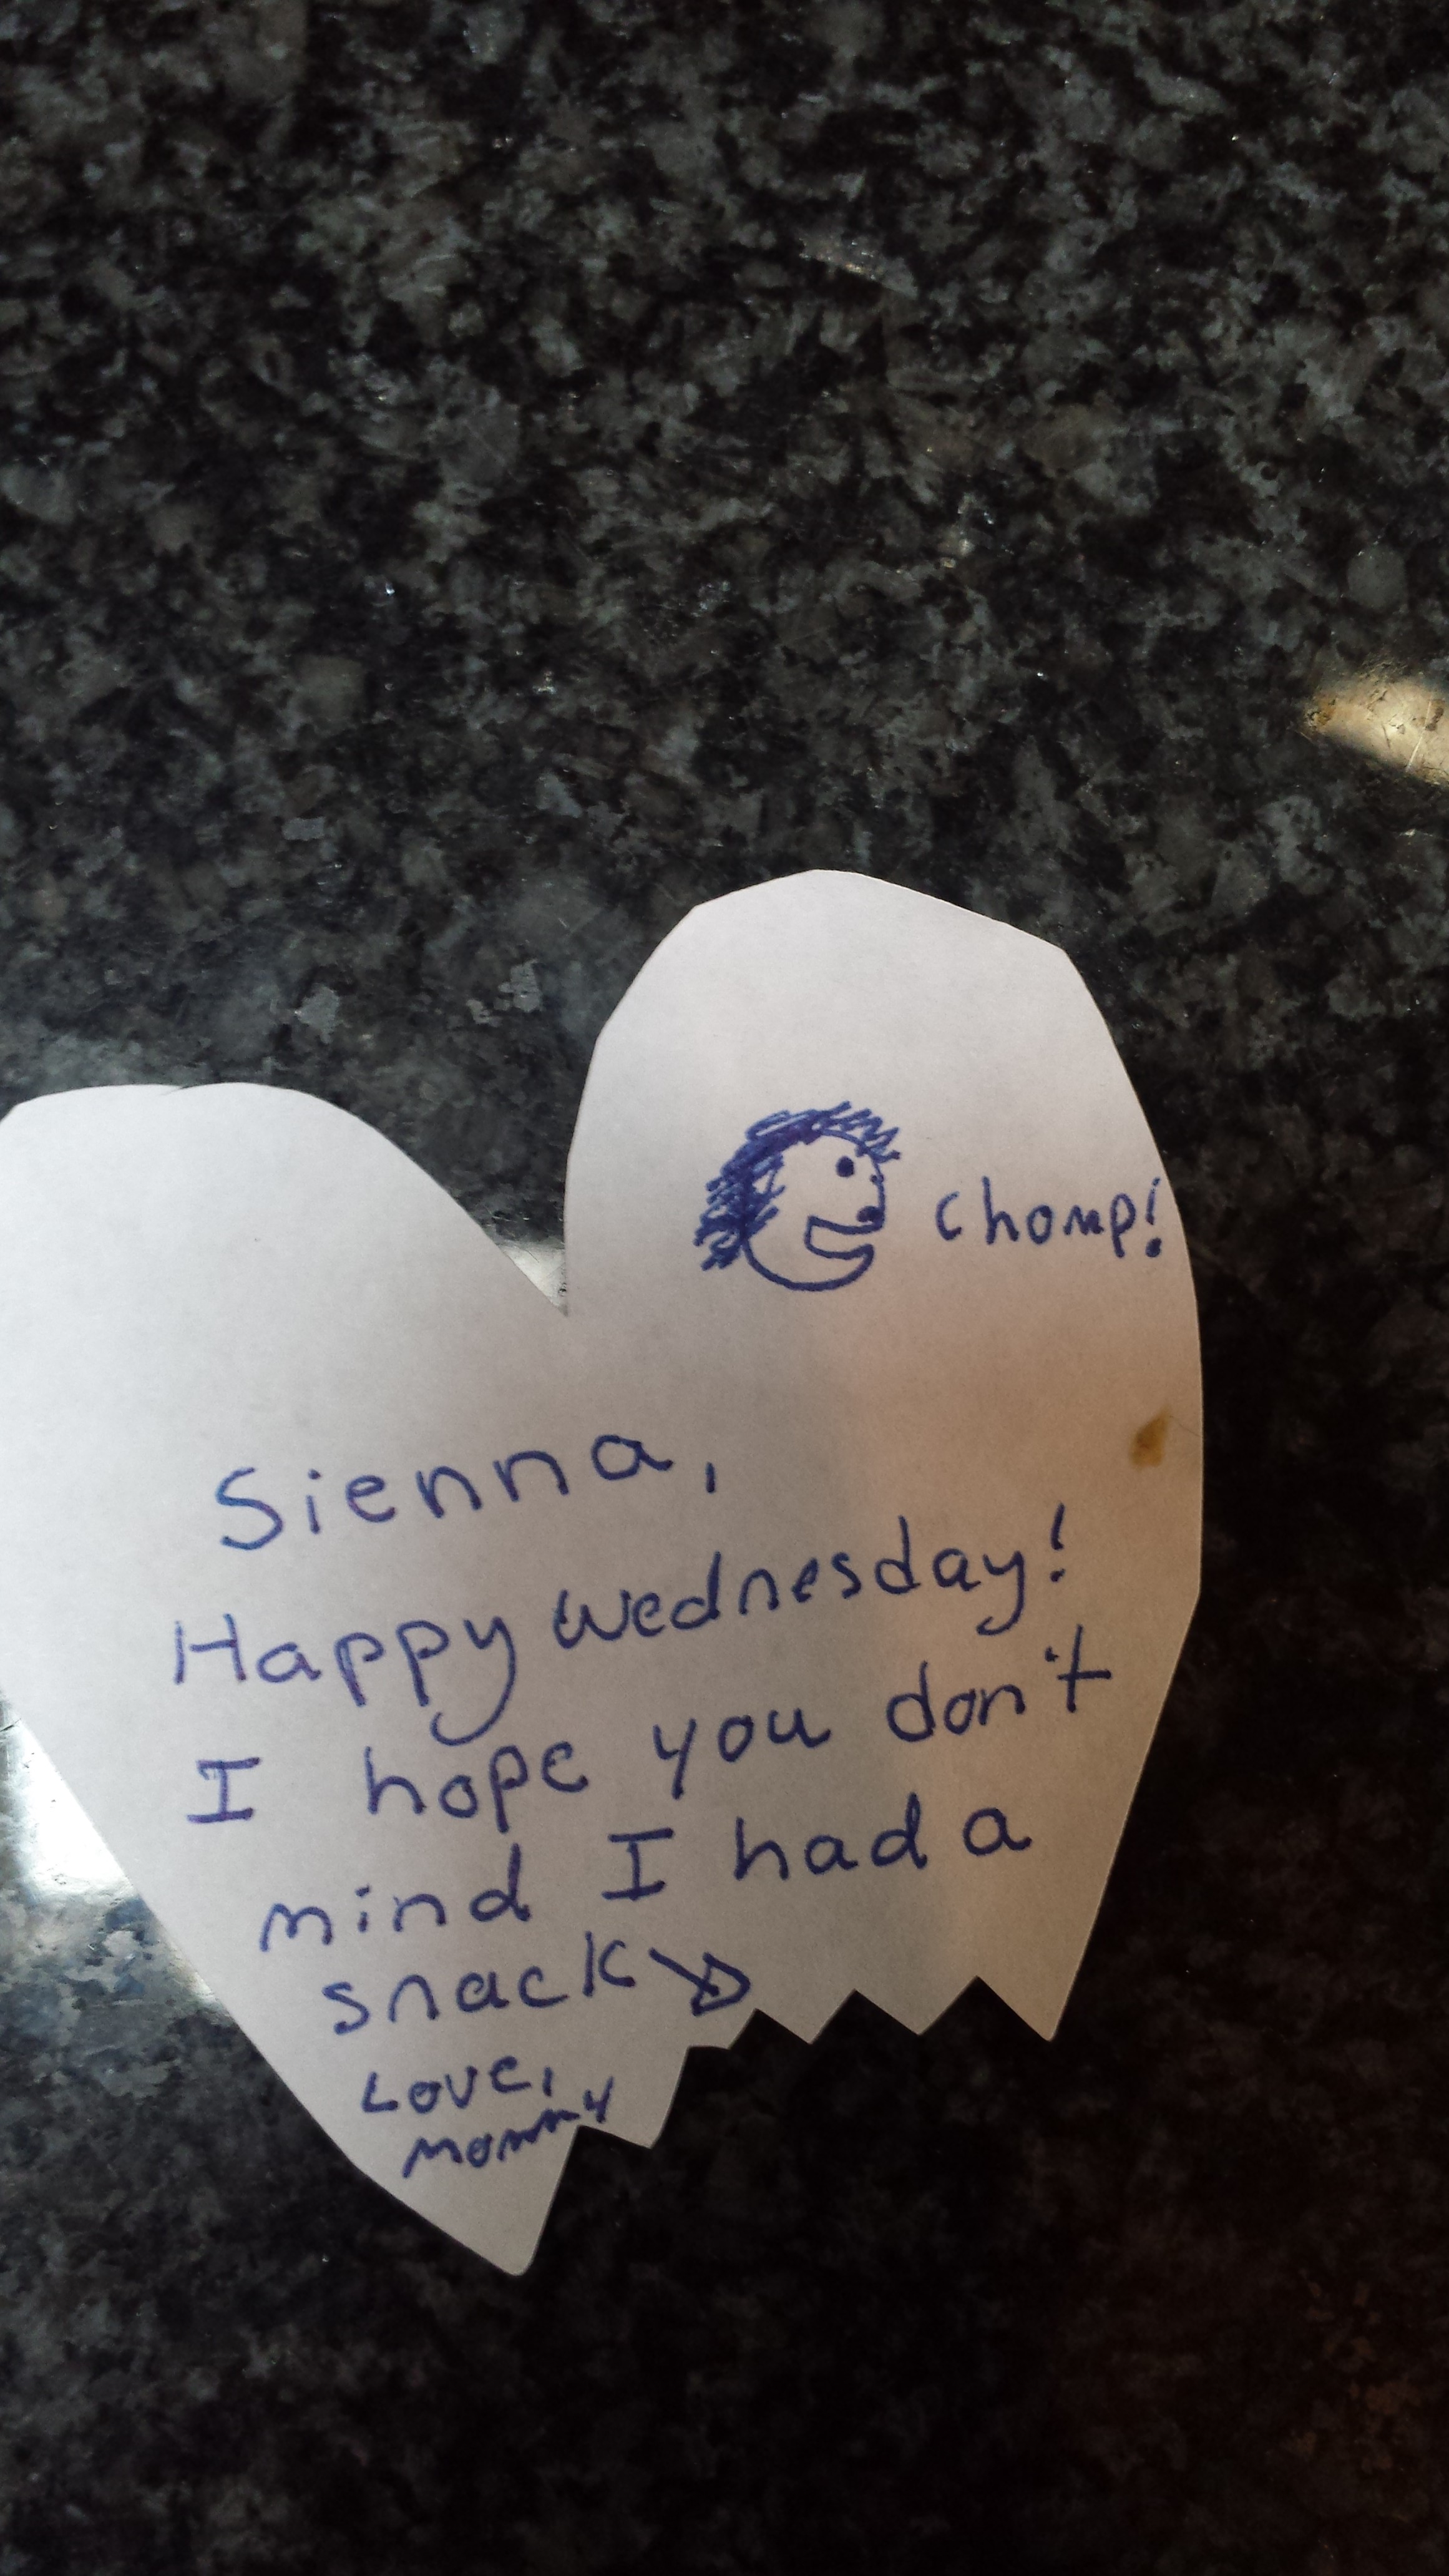 Chomp!
Sienna,
Happy Wednesday!
I hope you don't
mind I had a
snack
Love,
Mommy